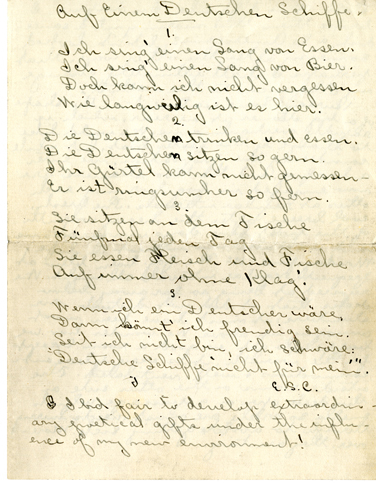 Auf Einem Deutschen Schiffe.
1.
Ich sing' einen Sang von Essen.
Ich sing' einen Sang von Bier.
Doch kann ich nicht vergessen
Wie langweilig ist es hier.
2.
Die Deutschen trinken und essen.
Die Deutschen sitzen so gern.
Ihr Gürtel kann nicht gemessen—
Er ist ringsumher so fern.
3.
Sie sitzen an dem Tische
Fünfmal jeden Tag
Sie essen Fleisch und Fische
Auf immer ohne Klag'.
3.
Wenn ich ein Deutscher wäre,
Dann könnt' ich freudig sein.
Seit ich nicht bin, ich schwäre:
"Deutsche Schiffe nicht für mein".
E.S.C.
I bid fair to develop extraordin-
ary poetical gifts under the influ-
ence of my new enviroment!